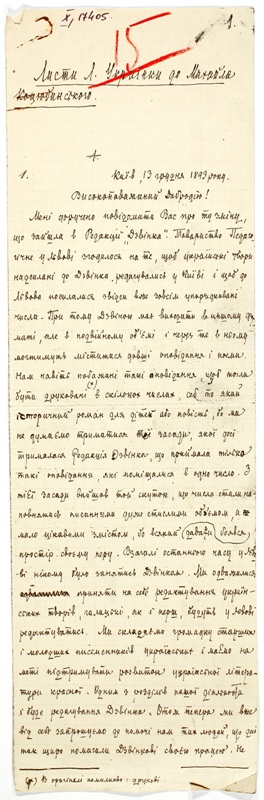 X, 17405
15
1.
Листи Л. Українки до Михайла
Коцюбинського.
1.
Київ 13 грудня 1893 року.
Високоповажаний Добродію!
Мені доручено повідомити Вас про ту зміну,
що зайшла в Редакції "Дзвінка". Товариство Педаго-
гічне у Львові згодилось на те, щоб українські твори
надсилані до Дзвінка, редагувались у Київі і щоб до
Львова посилалися звідси вже зовсім упорядковані
числа. При тому Дзвінок має виходити в
маті, але в подвійному об'ємі і через те в ньому
можуть міститися довші оповідання і поеми.
Нам навіть побажані такі оповідання, щоб могли
бути друковані в скількох числах, себ то який
історичний роман для дітей або повість, бо ми
не думаємо триматися тої засади, якої досі
трималась Редакція Дзвінка, що приймала тілько
такі оповідання, які поміщалися в одно число. З
тієї засади вийшов той скуток, що числа стали на-
повнятись писаннями дуже стислими об'ємом, а
мало цікавими змістом, бо всякий боявся
простір свому перу. Взагалі останнього часу у Льво-
ві нікому було занятись Дзвінком. Ми одважилися
приняти на себе редактування україн-
ських творів, галицькі як і перш, будуть у Львові
редактуватись. Ми складаємо громадку старших
і молодших письменників українських і маємо на
меті підтримувати розвиток української літера-
тури красної. Одним з розділів нашої діяльности
і буде редагування Дзвінка. Отож тепера ми вже
від себе запрошуємо до помочі нам тих людей, що досі
так щиро помагали Дзвінкові своєю працею. Не
В оригіналі помилково: друкові